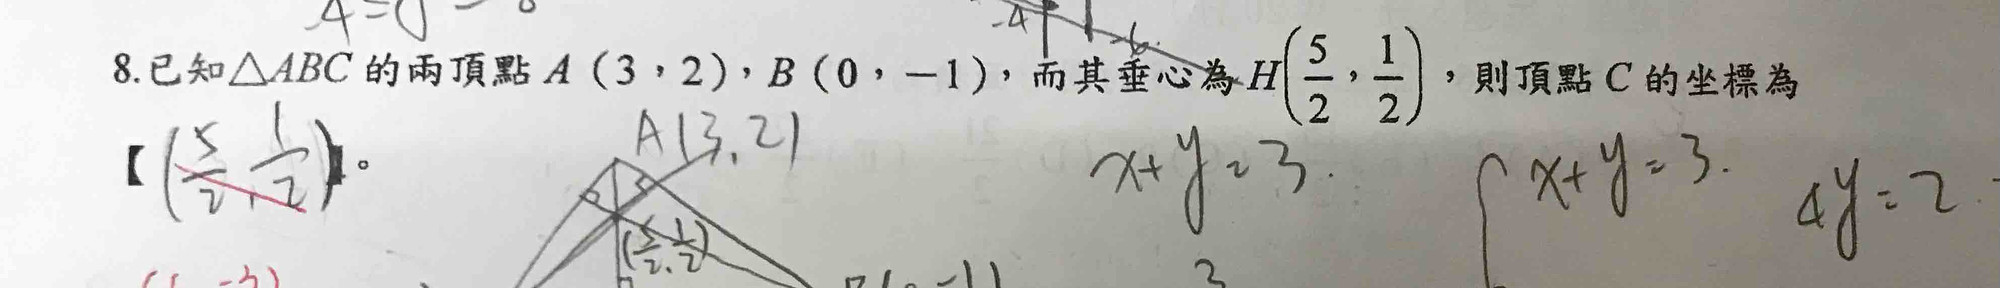 8.已知△ABC 的兩頂點 A（3，2），B（0，−1），而其垂心為 H(5/2，1/2)，則頂點 C 的坐標為
【(5/2, 1/2)】。
A(3,2)
x+y=3.
x+y=3.
4y=2
(5/2, 1/2)